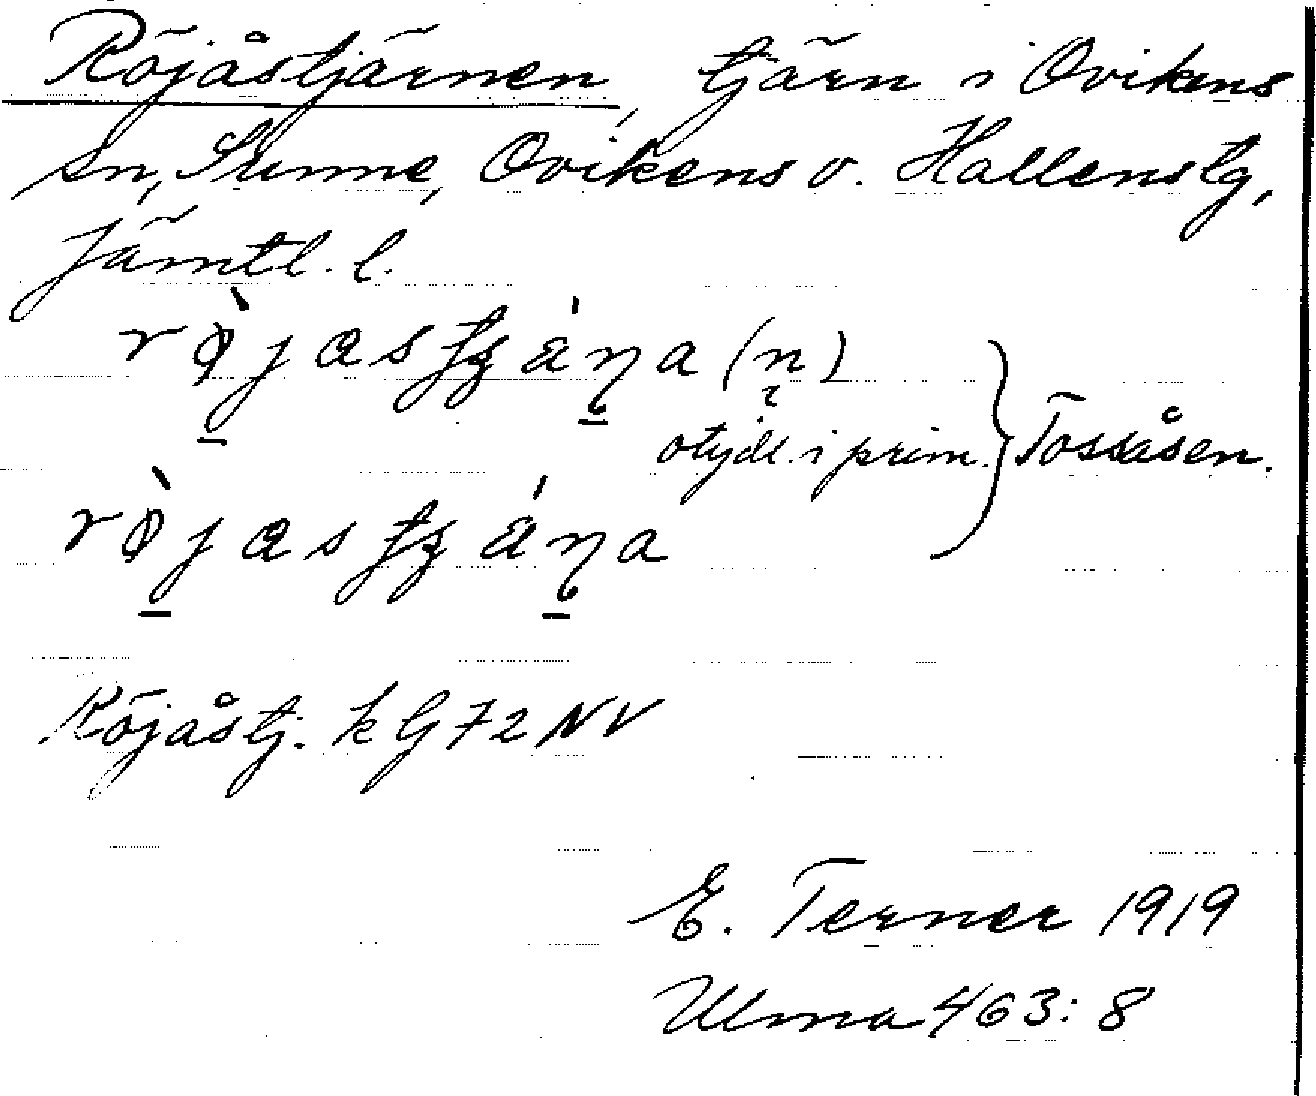 Röjåstjärnen, tjärn i Ovikens
sn, Sunne, Ovikens o. Hallens tg,
Jämtl. l.
otydl. i prim.
Tossåsen.
Röjåstj. k G 72 NV
E. Terner 1919
Ulma 463: 8